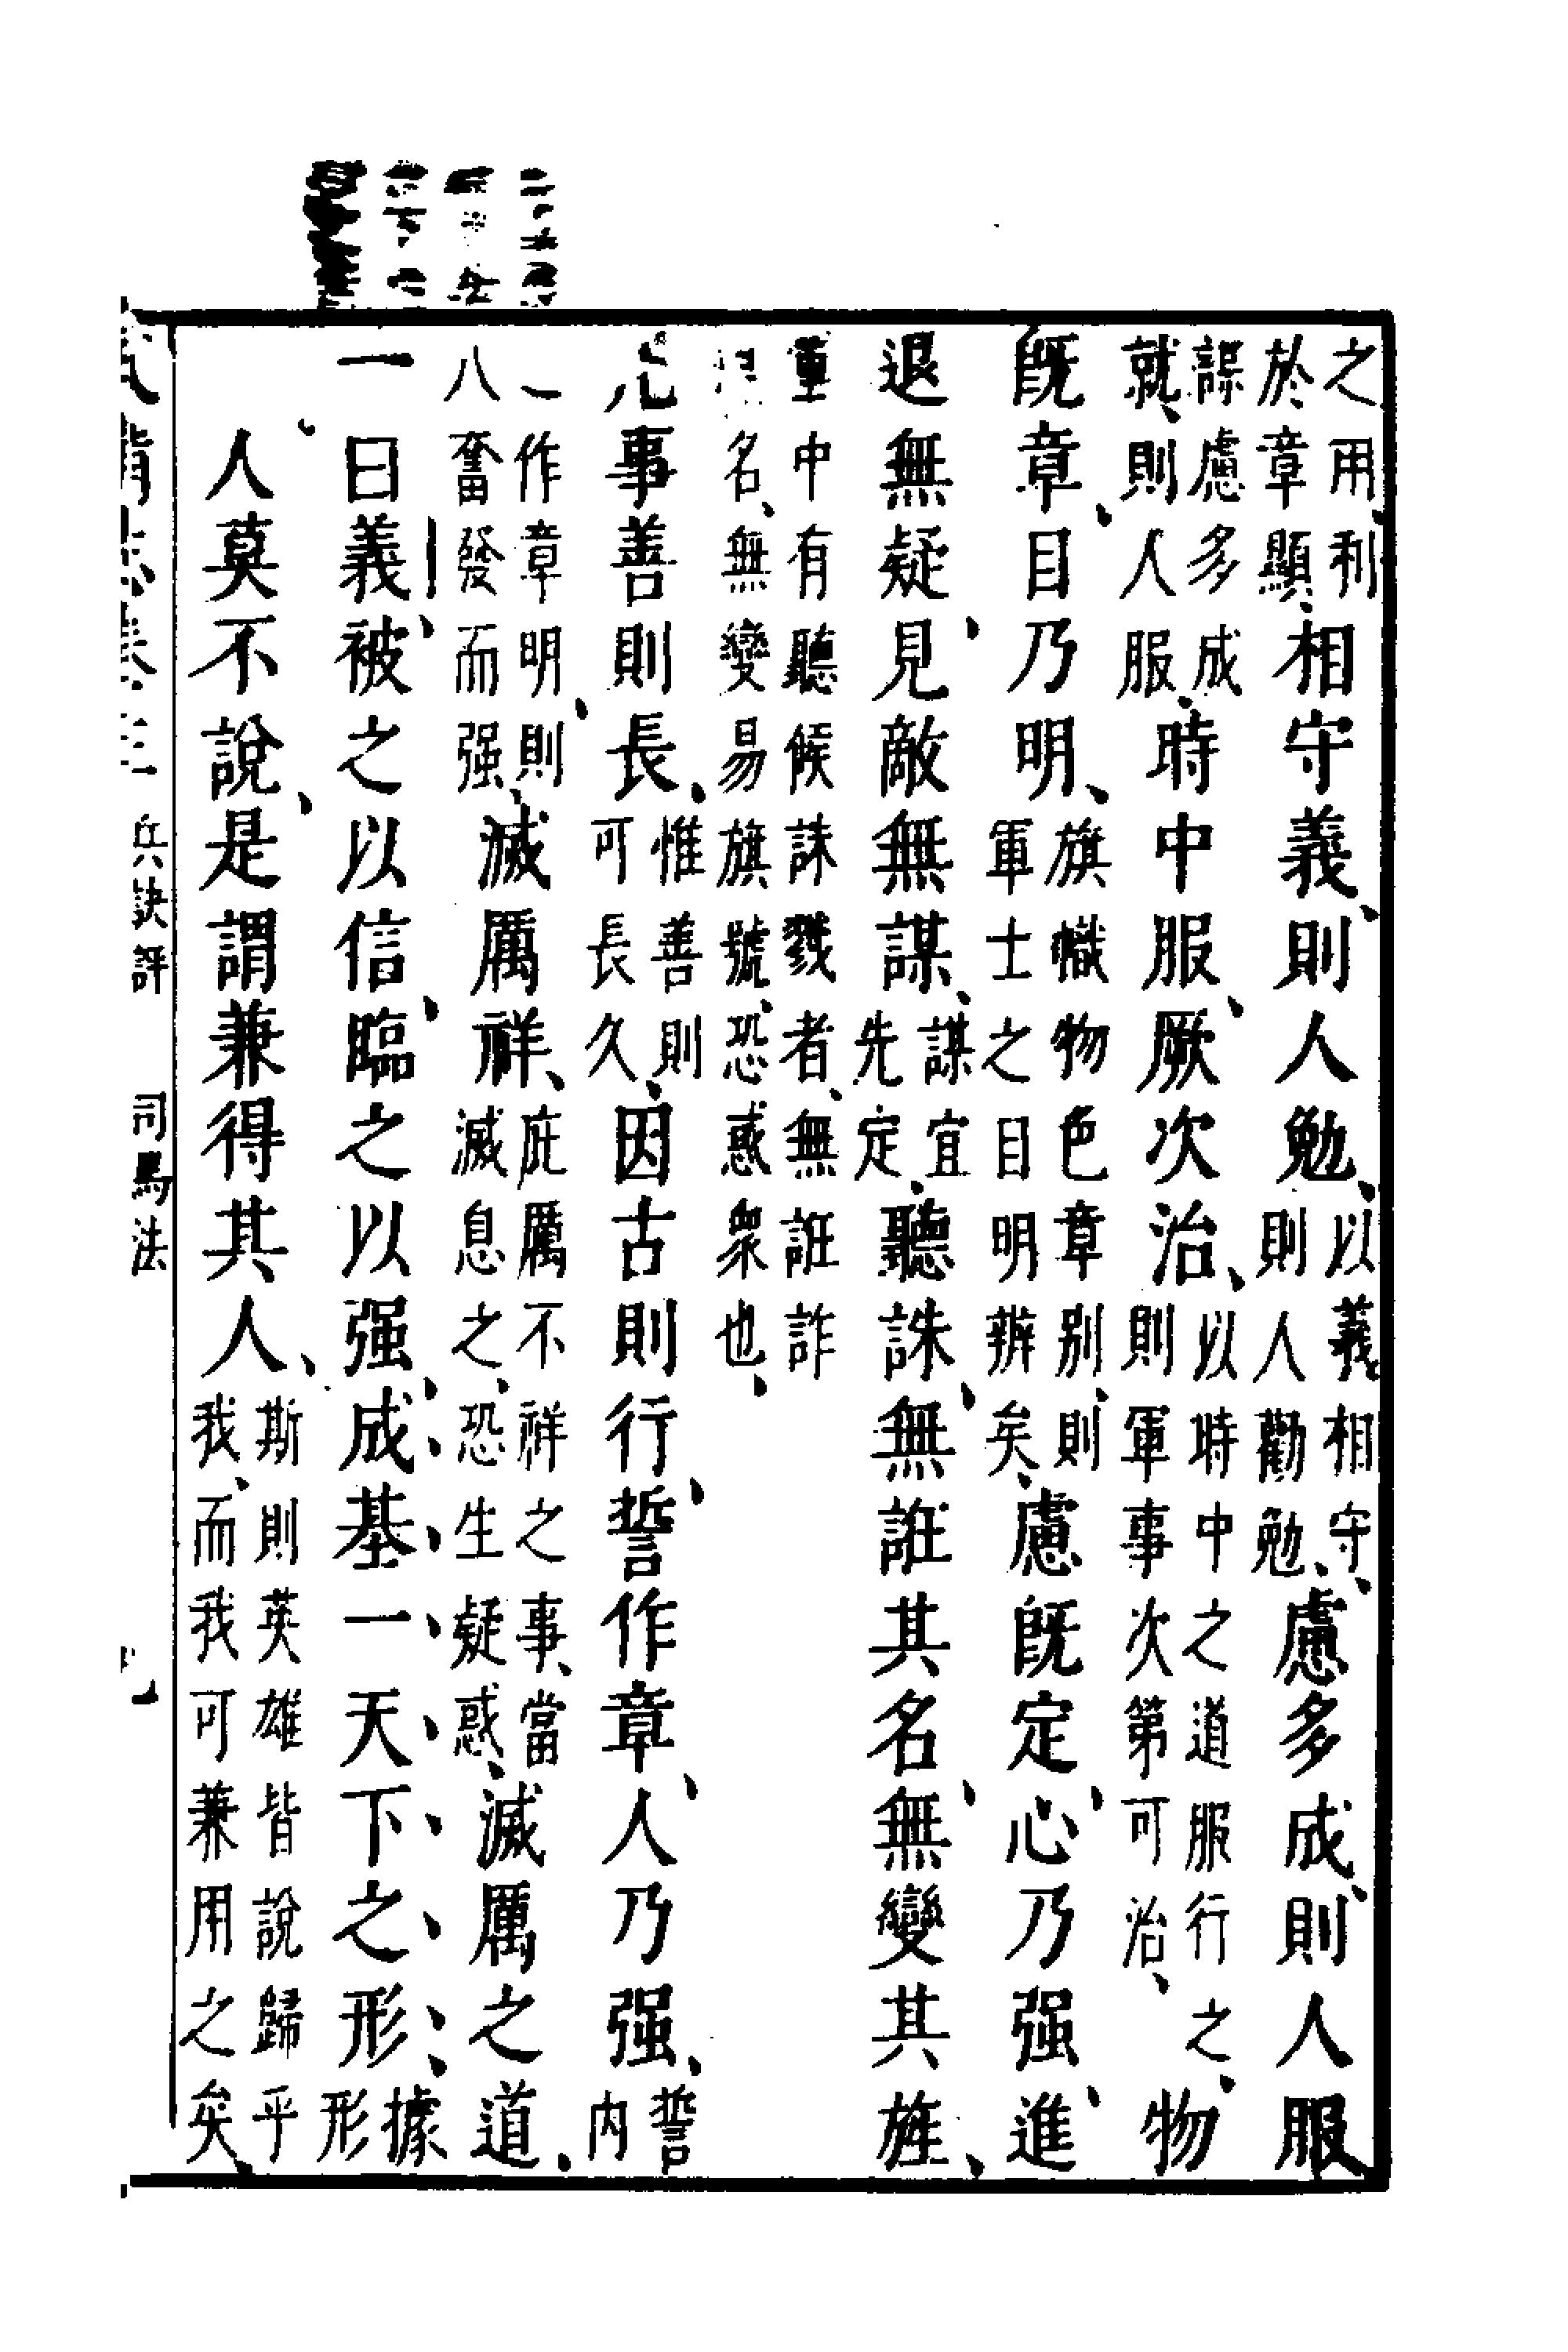 之用利於章顯相守義則人勉以義相守則人勸勉慮多成則人服
謀慮多成就則人服時中服厥次治以時中之道服行之則軍事次第可治物
既章目乃明旗幟物色章别則軍士之目明辨矣慮既定心乃强進
退無疑見敵無謀謀宜先定聽誅無誑其名無變其旌
軍中有聽候誅戮者無誑詐名無變易旗號恐惑衆也
凡事善則長惟善則可長久因古則行誓作章人乃强誓内
一作章明則八奮發而强滅厲祥疵厲不祥之事當滅息之恐生疑惑滅厲之道
一曰義被之以信臨之以强成基一天下之形據形
人莫不說是謂兼得其人斯則英雄皆說歸乎我而我可兼用之矣
武備志卷三 兵訣評 司馬法